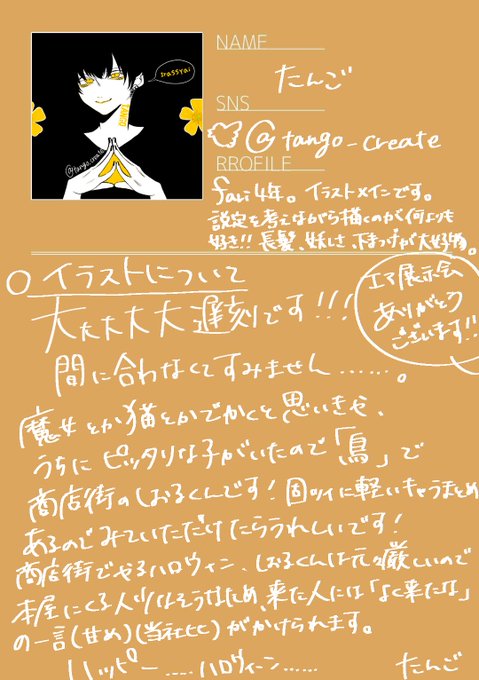 NAME
たんご
SNS
@tango_create
PROFILE
favi4年。イラストメインです。
設定を考えながら描くのが何よりも
好き!! 長髪、妖しさ、下まつげが大好物。
srassyai
TANGO
@tango_create
○イラストについて
大大大大大遅刻です!!!
間に合わなくてすみません……。
エマ展示会
ありがとう
ございます!!
魔女とか猫とかでかくと思いきや、
うちにピッタリな子がいたので「鳥」で
商店街のしおるくんです!固ツイに軽いキャラまとめ
あるのでみていただけたらうれしいです!
商店街でやるハロウィン、しおるくんは元々厳しいので
本屋にくる人少なそうなため、来た人には「よく来たな」
の一言(甘め)(当社比)がかけられます。
ハッピー……ハロウィーン……
たんご